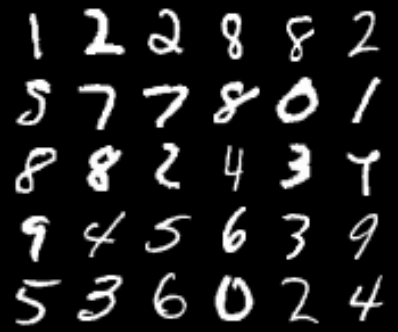 1 2 2 8 8 2
5 7 7 8 0 1
8 8 2 4 3 4
9 4 5 6 3 9
5 3 6 0 2 4